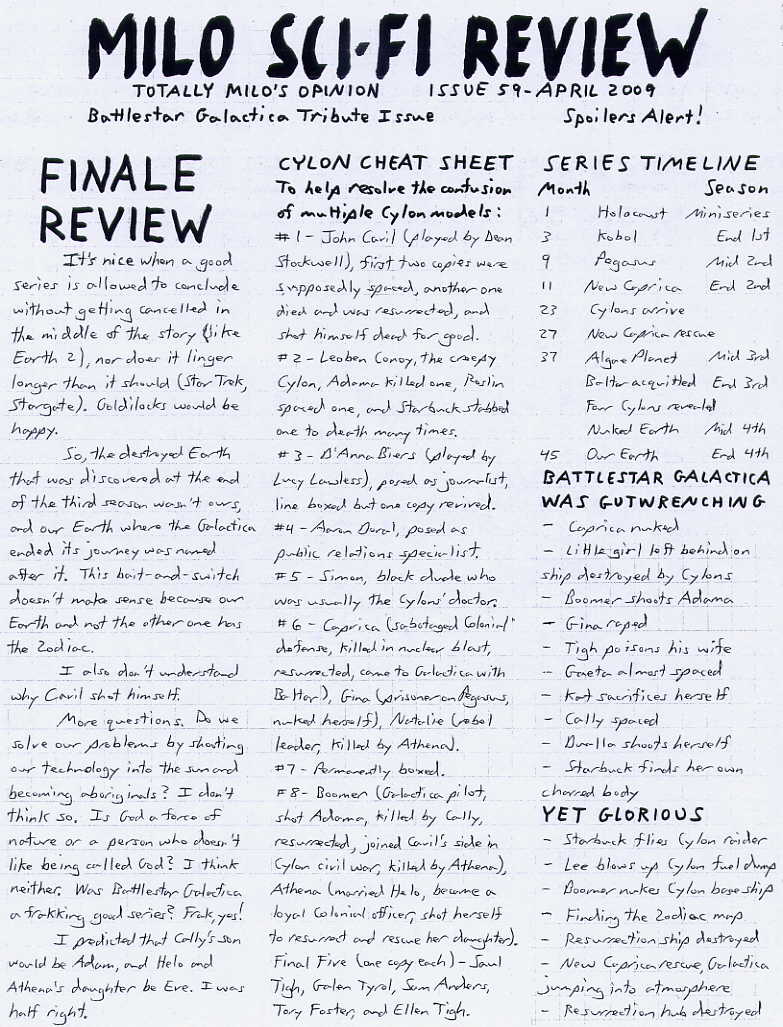 MILO SCI-FI REVIEW
TOTALLY MILO'S OPINION ISSUE 59-APRIL 2009
Battlestar Galactica Tribute Issue Spoilers Alert!
FINALE
REVIEW
It's nice when a good
series is allowed to conclude
without getting cancelled in
the middle of the story (like
Earth 2), nor does it linger
longer than it should (Star Trek,
Stargate). Goldilocks would be
happy.
So, the destroyed Earth
that was discovered at the end
of the third season wasn't ours,
and our Earth where the Galactica
ended its journey was named
after it. This bait-and-switch
doesn't make sense because our
Earth and not the other one has
the Zodiac.
I also don't understand
why Cavil shot himself.
More questions. Do we
solve our problems by shooting
our technology into the sun and
becoming aboriginals? I don't
think so. Is God a force of
nature or a person who doesn't
like being called God? I think
neither. Was Battlestar Galactica
a frakking good series? Frak yes!
I predicted that Cally's son
would be Adam, and Helo and
Athena's daughter be Eve. I was
half right.
CYLON CHEAT SHEET
To help resolve the confusion
of multiple Cylon models:
#1 - John Cavil (played by Dean
Stockwell), first two copies were
supposedly spaced, another one
died and was resurrected, and
shot himself dead for good.
#2 - Leoben Conoy, the creepy
Cylon, Adama killed one, Roslin
spaced one, and Starbuck stabbed
one to death many times.
#3 - D'Anna Biers (played by
Lucy Lawless), posed as journalist,
line boxed but one copy revived.
#4 - Aaron Doral, posed as
public relations specialist.
#5 - Simon, black dude who
was usually the Cylons' doctor.
#6 - Caprica (sabotaged Colonial
defense, killed in nuclear blast,
resurrected, came to Galactica with
Baltar), Gina (prisoner on Pegasus,
nuked herself), Natalie (rebel
leader, killed by Athena).
#7 - Permanently boxed.
#8 - Boomer (Galactica pilot,
shot Adama, killed by Cally,
resurrected, joined Cavil's side in
Cylon civil war, killed by Athena),
Athena (married Helo, became a
loyal Colonial officer, shot herself
to resurrect and rescue her daughter).
Final Five (one copy each) - Saul
Tigh, Galen Tyrol, Sam Anders,
Tory Foster, and Ellen Tigh.
SERIES TIMELINE
Month Season
1 Holocaust Miniseries
3 Kobol End 1st
9 Pegasus Mid 2nd
11 New Caprica End 2nd
23 Cylons arrive
27 New Caprica rescue
37 Algae Planet Mid 3rd
Baltar acquitted End 3rd
Four Cylons revealed
Nuked Earth Mid 4th
45 Our Earth End 4th
BATTLESTAR GALACTICA
WAS GUTWRENCHING
- Caprica nuked
- Little girl left behind on
ship destroyed by Cylons
- Boomer shoots Adama
- Gina raped
- Tigh poisons his wife
- Gaeta almost spaced
- Kat sacrifices herself
- Cally spaced
- Dualla shoots herself
- Starbuck finds her own
charred body
YET GLORIOUS
- Starbuck flies Cylon raider
- Lee blows up Cylon fuel dump
- Boomer nukes Cylon base ship
- Finding the Zodiac map
- Resurrection ship destroyed
- New Caprica rescue, Galactica
jumping into atmosphere
- Resurrection hub destroyed